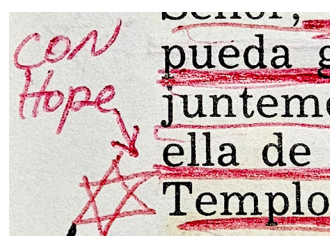 CON
Hope
Señor,
pueda g
junteme
ella de
Templo